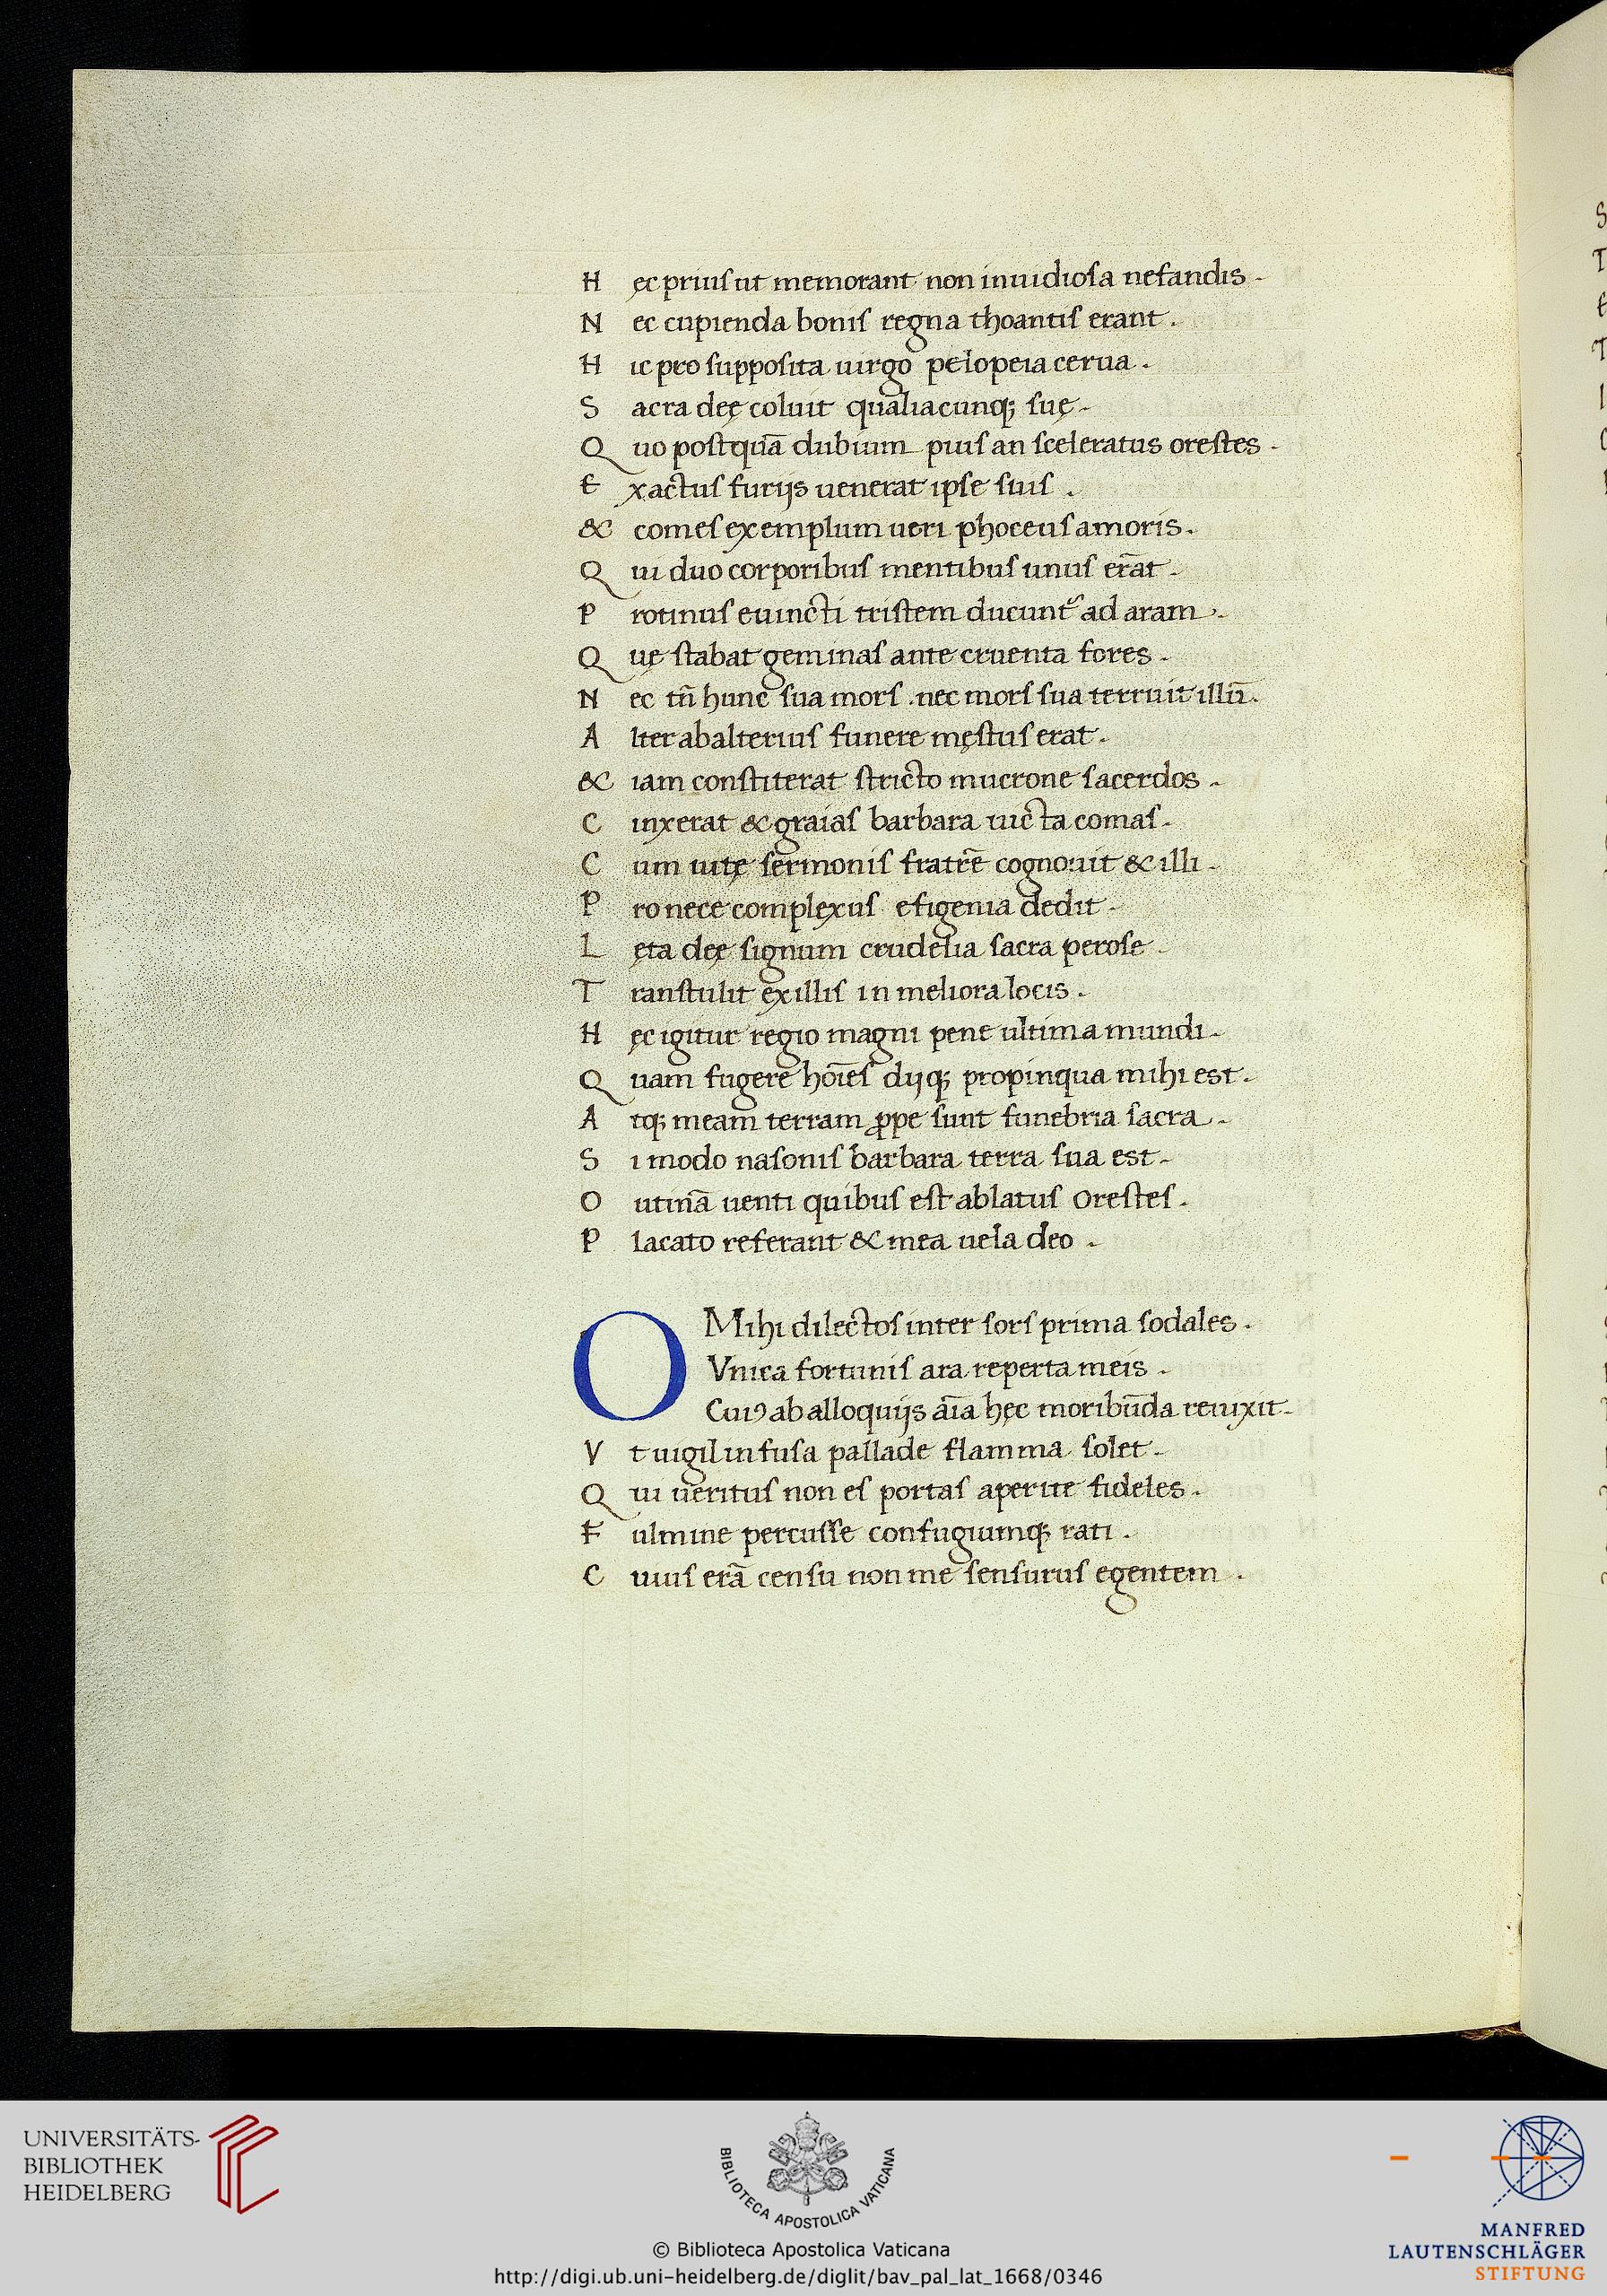 Hęc priuſ ut memorant non inuidioſa nefandis.
Nec cupienda boniſ regna thoantiſ erant.
Hic pro ſuppoſita uirgo pelopeia cerua.
Sacra deę coluit qualiacunq; ſuę.
Quo poſtquā dubium piuſ an ſceleratus oreſtes.
Exactuſ furijs uenerat ipſe ſuiſ.
& comeſ exemplum ueri phoceuſ amoris.
Qui duo corporibuſ mentibuſ unuſ erāt.
Protinuſ euincti triſtem ducunt᷑ ad aram.
Quę ſtabat geminaſ ante cruenta fores.
Nec tn̄ hunc ſua morſ .nec morſ ſua terruit illū.
Alter ab alteriuſ funere męſtuſ erat.
& iam conſtiterat ſtricto mucrone ſacerdos.
Cinxerat & graiaſ barbara uicta comaſ.
Cum uitę ſermoniſ fratrē cognouit & illi.
Pro nece complexuſ efigenia dedit.
Lęta deę ſignum crudelia ſacra peroſe.
Tranſtulit ex illiſ in meliora locis.
Hęc igitur regio magni pene ultima mundi.
Quam fugere hoīeſ dijq; propinqua mihi est.
Atq; meam terram ꝓpe ſunt funebria ſacra.
Si modo naſoniſ barbara terra ſua est.
O utinā uenti quibuſ eſt ablatuſ Oreſteſ.
Placato referant & mea uela deo.
O Mihi dilectoſ inter ſorſ prima ſodales.
Vnica fortuniſ ara reperta meis.
Cuiꝰ ab alloquijs aīa hęc moribūda reuixit.
Vt uigil infuſa pallade flamma ſolet.
Qui ueritus non eſ portaſ aperire fideles.
Fulmine percuſſe confugiumq; rati.
Cuiuſ erā cenſu non me ſenſuruſ egentem.
UNIVERSITÄTS-
BIBLIOTHEK
HEIDELBERG
BIBLIOTECA APOSTOLICA VATICANA
© Biblioteca Apostolica Vaticana
http://digi.ub.uni-heidelberg.de/diglit/bav_pal_lat_1668/0346
MANFRED
LAUTENSCHLÄGER
STIFTUNG